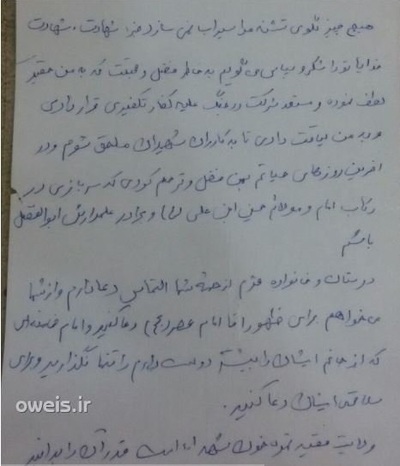 هیچ چیز گلوی تشنه مرا سیراب نمی سازد جز شهادت، شهادت
خدایا تو را شکر و سپاس می گویم به خاطر فضل و رحمتت که به من حقیر
لطف نموده و مستعد شرکت در جنگ علیه کفار تکفیری قرار دادی
و به من لیاقت دادی تا به کاروان شهیدان ملحق شوم و در
آخرین روزهای حیاتم بمن فضل و ترحم کردی که سربازی در
رکاب امام و مولایم حسین ابن علی (ع) و برادر علمدارش ابوالفضل
باشم
دوستان و خانواده عزیزم از همه شما التماس دعا دارم و از شما
می خواهم برای ظهور آقا امام عصر (عج) دعا کنید و امام خامنه ای
که از جانم ایشان را بیشتر دوست دارم را تنها نگذارید و برای
سلامتی ایشان دعا کنید.
ولایت فقیه ثمره خون شهدا است قدر آن را بدانید
oweis.ir